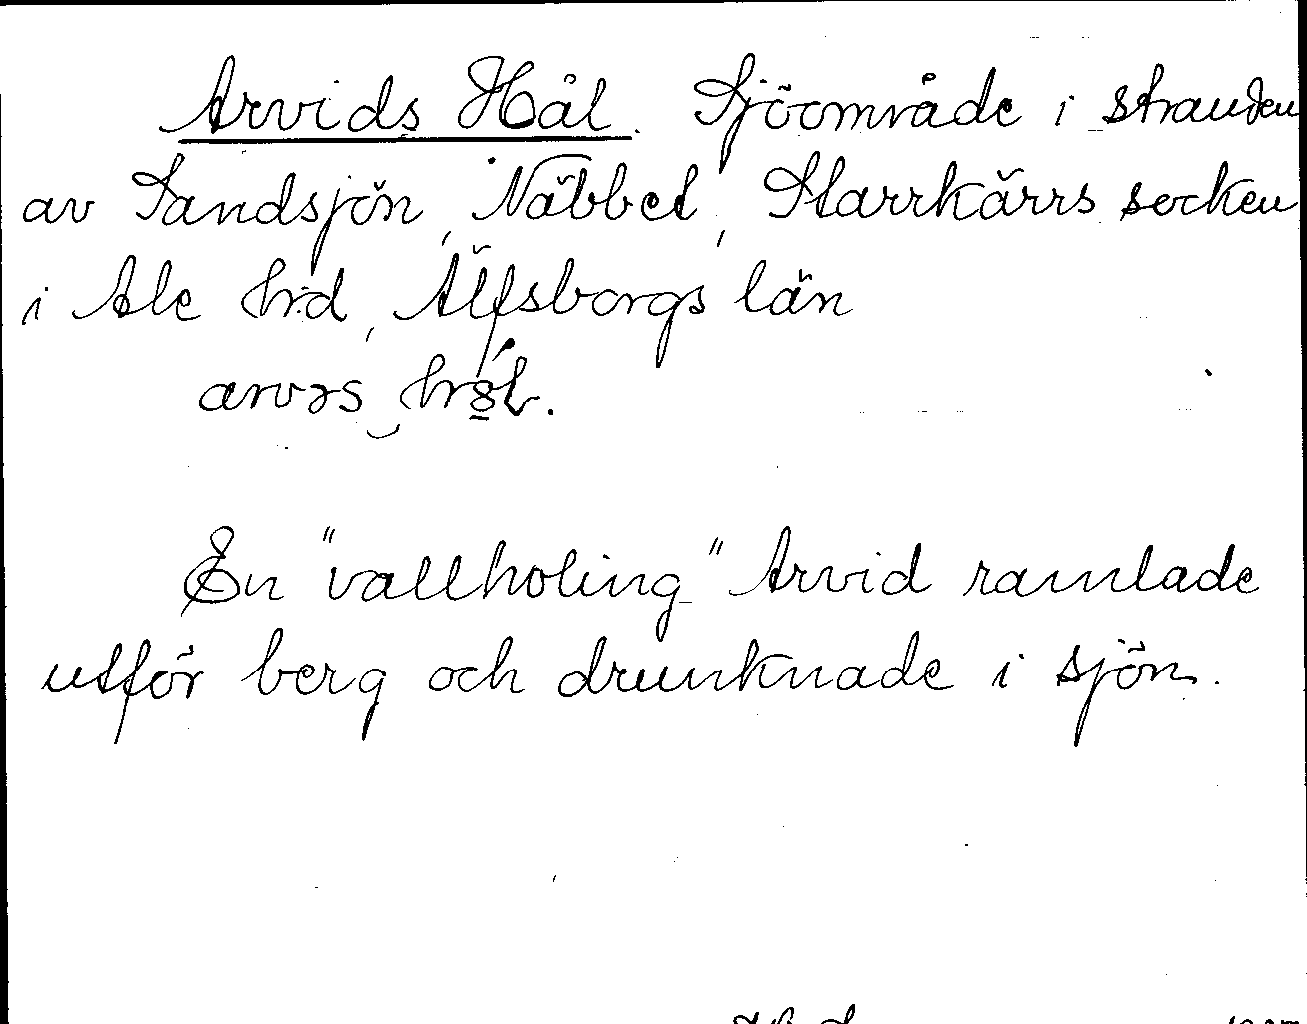 Arvids Hål. Sjöområde i stranden
av Sandsjön, Näbbet, Starrkärrs socken
i Ale hrd, Älfsborgs län

En "vallholing" Arvid ramlade
utför berg och drunknade i sjön.